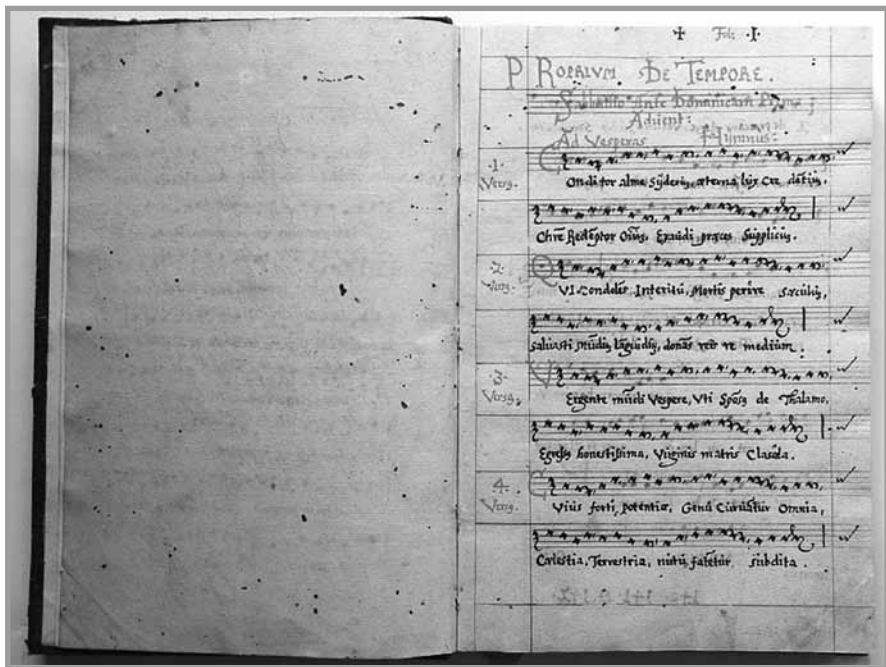 ✝ Fol: ·I·
PROPRIVM DE TEMPORE.
Sabbatho Ante Dominicam Primā
Aduent:
Ad Vesperas Hymnus:
·1· Versq. Conditor alme Syderū, æterna lux Cre dētiū,
Chre Redēptor Oīus, Exaudi præces Supplicū.
·2· Versq. QVI Condolēs Interitū, Mortis perire Sæculū,
Saluasti mūdū lāguidū, donās reis re medium.
3· Versq. VErgente mūdi Vespere, Vti Spōsq de Thalamo,
Egressq honestissima, Virginis matris Clausula.
4· Versq. CVius forti, potentiæ, Genū Curuātur Omnia,
Cælestia, Terrestria, nutū, fatētur subdita.